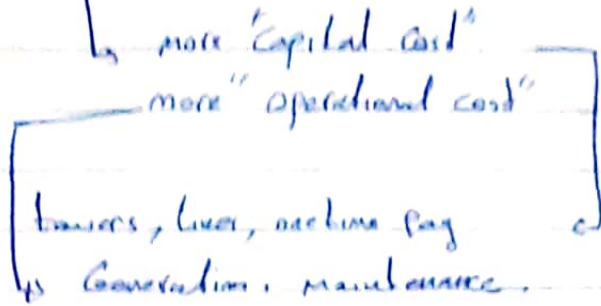 more "Capital Cost"
more "operational cost"
towers, lines, machine
Generation, maintenance.